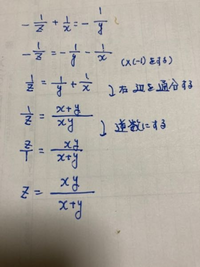 -1/z + 1/x = -1/y
-1/z = -1/y - 1/x
(x(-1)をする)
1/z = 1/y + 1/x
右辺を通分する
1/z = x+y/xy
逆数にする
z/1 = xy/x+y
z = xy/x+y